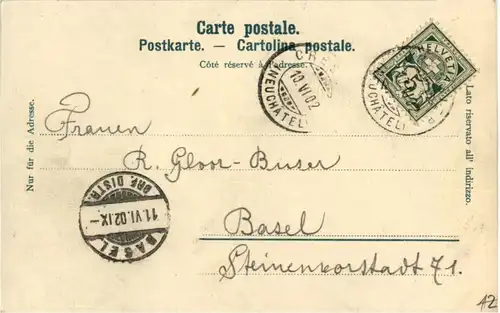 Carte postale.
Postkarte. — Cartolina postale.
Côté réservé à l'adresse.
Nur für die Adresse.
Lato riservato all' indirizzo.
HELVETIA
10 VI 02
(NEUCHÂTEL)
(NEUCHÂTEL)
Frauen
R. Gloor-Buser
Basel
Steinenvorstadt 71.
BRF. DISTR.
11. VI. 02. IX —
BASEL